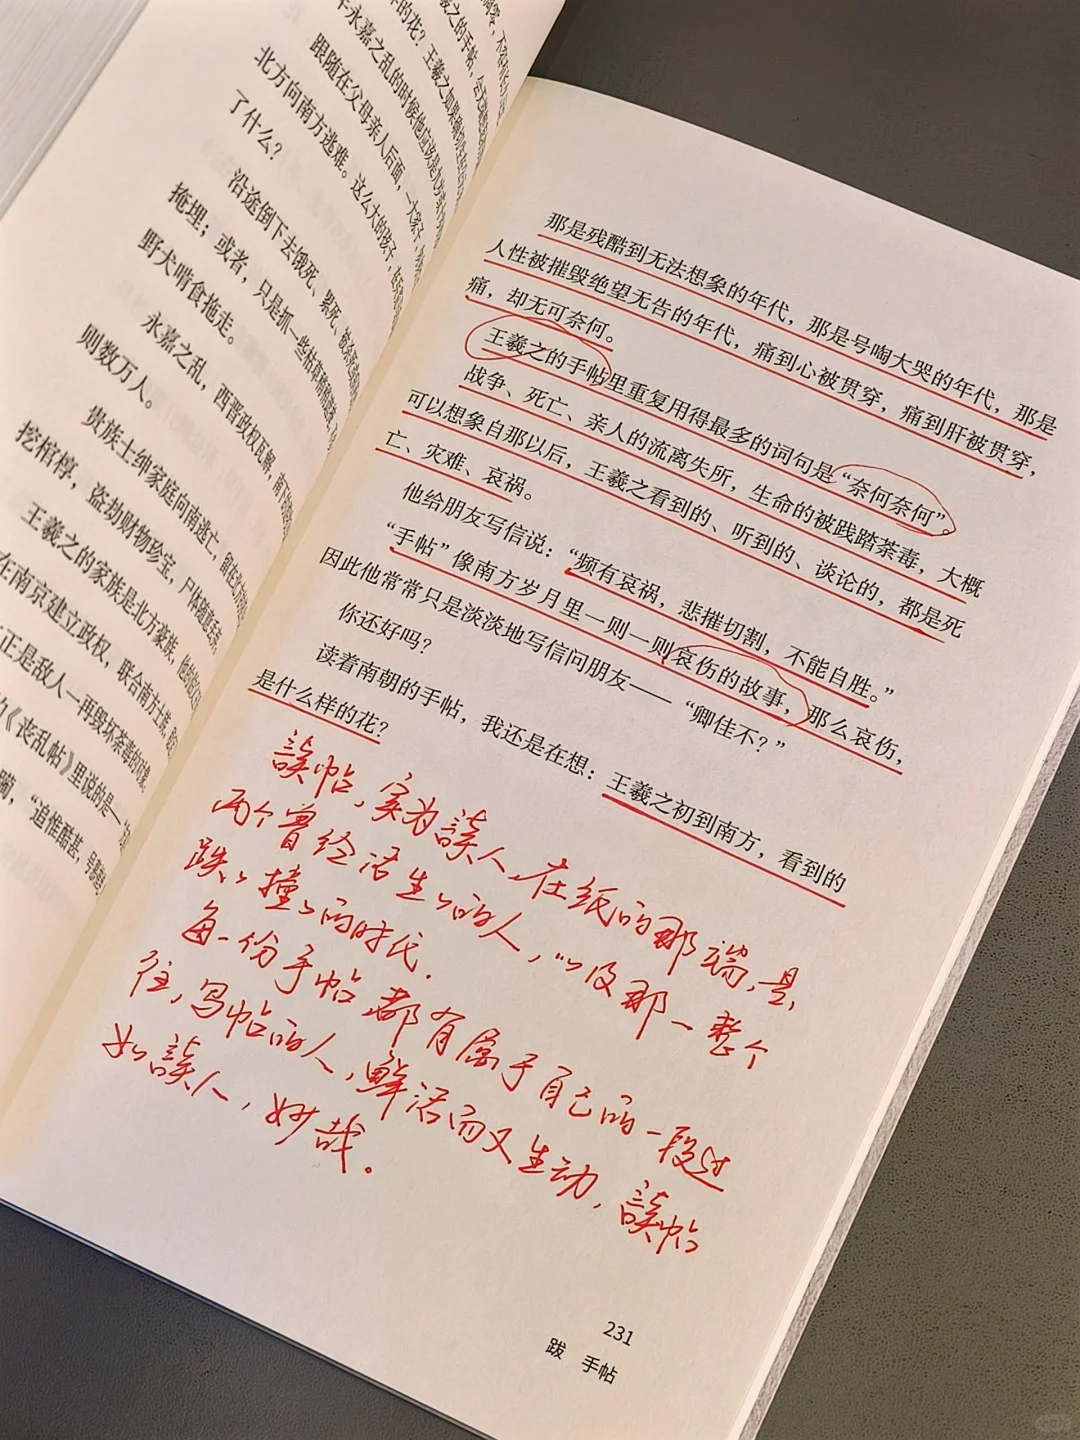 的花？王羲之如果
永嘉之乱的时候他应该是九岁
跟随在父母亲人后面，一大家子
北方向南方逃难。这么大的孩子，
了什么？
沿途倒下去饿死、累死、被杀死的
掩埋；或者，只是抓一些枯草稍稍遮
野犬啃食拖走。
永嘉之乱，西晋政权瓦解，南
则数万人。
贵族士绅家庭向南逃亡，留在北方的
挖棺椁，盗劫财物珍宝，尸体随意
王羲之的家族是北方豪族，他的
在南京建立政权，联合南方士族，
正是敌人一再毁坏荼毒的对象。
《丧乱帖》里说的是——
“追惟酷甚，号
那是残酷到无法想象的年代，那是号啕大哭的年代，那是
人性被摧毁绝望无告的年代，痛到心被贯穿，痛到肝被贯穿，
痛，却无可奈何。
王羲之的手帖里重复用得最多的词句是“奈何奈何”。
战争、死亡、亲人的流离失所，生命的被践踏荼毒，大概
可以想象自那以后，王羲之看到的、听到的、谈论的，都是死
亡、灾难、哀祸。
他给朋友写信说：“频有哀祸，悲摧切割，不能自胜。”
“手帖”像南方岁月里一则一则哀伤的故事，那么哀伤，
因此他常常只是淡淡地写信问朋友——“卿佳不？”
你还好吗？
读着南朝的手帖，我还是在想：王羲之初到南方，看到的
是什么样的花？
讀帖，实为讀人，在纸的那端，是
两个曾经活生々的人，以及那一整个
跌々撞々的时代.
每一份手帖都有属于自己的一段过
往，写帖的人，鲜活而又生动，讀帖
如讀人，妙哉。
231
跋 手帖